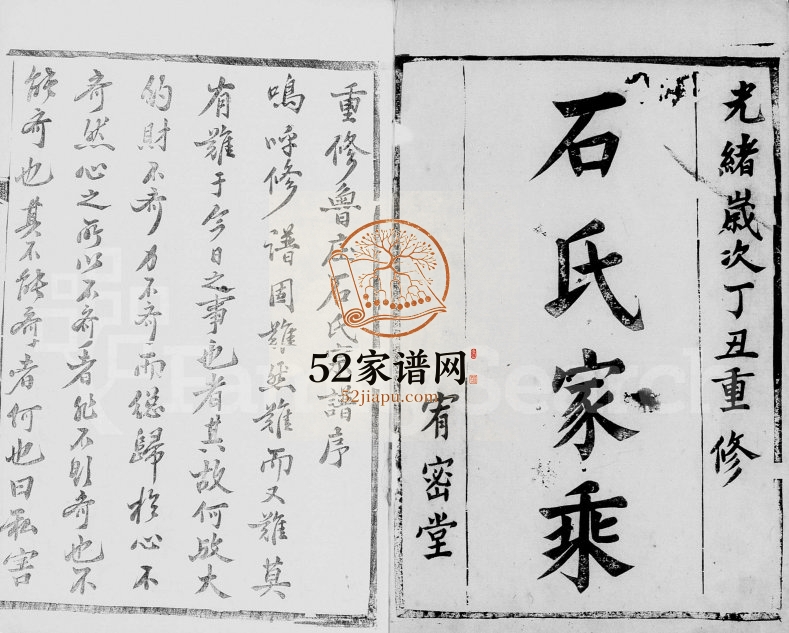 光緒歲次丁丑重修
石氏家乘
宥密堂
重修魯庄石氏家譜序
嗚呼修譜固難然難而又難莫
有難于今日之事也者其故何故大
約財不齊力不齊而總歸於心不
齊然心之所以不齊者非不則齊也不
能齊也其不能齊者何也曰私害
52家谱网
52jiapu.com